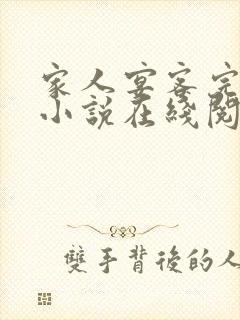 家人宴客完
小説在綫閱
雙手背後的人